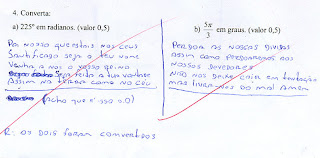 4. Converta:
a) 225° em radianos. (valor 0,5)
Pai nosso que estais nos ceus
Santificado seja o teu nome
Venha a nos o vosso reino
Seja feita a tua vontade
Assim na terra como no céu
(Acho que é isso o.O)
b) 5π/3 em graus. (valor 0,5)
Perdoa as nossas dividas
assim como perdoamos aos
nossos devedores
Não nos deixe cair em tentação
mas livrai-nos do mal Amém
R: os dois foram convertidos